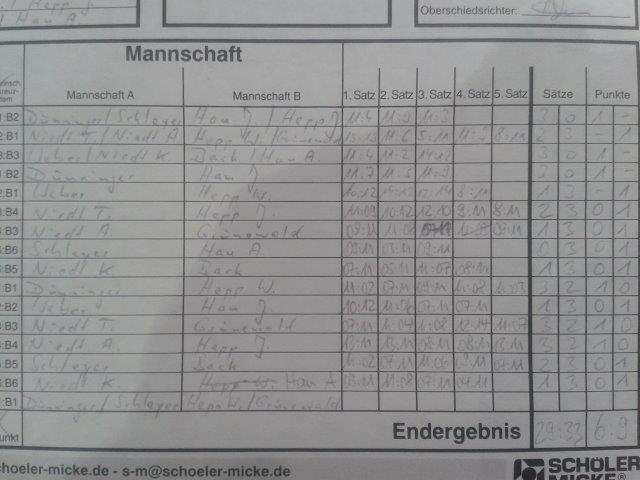 Hepp J
Hau A
Oberschiedsrichter:
Mannschaft
Mannschaft A Mannschaft B 1. Satz 2. Satz 3. Satz 4. Satz 5. Satz Sätze Punkte
:B2 Dünninger/Schleyer Hau J / Hepp J 11:4 11:9 11:3 3 0 1 -
:B1 Niedt T. / Niedt A Hepp W. / Grünewald 11:6 5:11 11:9 8:11 2 3 - 1
:B3 Weber / Niedt K Back / Hau A 11:4 11:2 14:12 3 0 1 -
:B2 Dünninger Hau J 11:7 11:5 11:9 3 0 1 -
:B1 Weber Hepp W. 10:12 8:11 1 3 - 1
:B4 Niedt T. Hepp J. 11:09 10:12 12:10 9:11 8:11 2 3 0 1
:B3 Niedt A Grünewald 08:11 11:08 09:11 1 3 0 1
:B6 Schleyer Hau A 09:11 03:11 09:11 0 3 0 1
:B5 Niedt K. Back 07:11 05:11 11:07 08:11 1 3 0 1
:B1 Dünninger Hepp W. 11:02 07:11 09:11 11:08 11:03 3 2 1 0
:B2 Weber Hau J. 10:12 11:06 07:11 07:11 1 3 0 1
:B3 Niedt T. Grünewald 07:11 11:04 11:08 12:14 11:07 3 2 1 0
:B4 Niedt A. Hepp J. 13:11 11:08 08:11 3 2 1 0
:B5 Schleyer Back 11:02 07:11 11:06 07:11 2 3 0 1
:B6 Niedt K. Hau A 11:08 07:11 04:11 1 3 0 1
:B1 Dünninger / Schleyer Hepp W. / Grünewald
unkt Endergebnis 29:33 6:9
hoeler-micke.de - s-m@schoeler-micke.de
SCHÖLER
MICKE